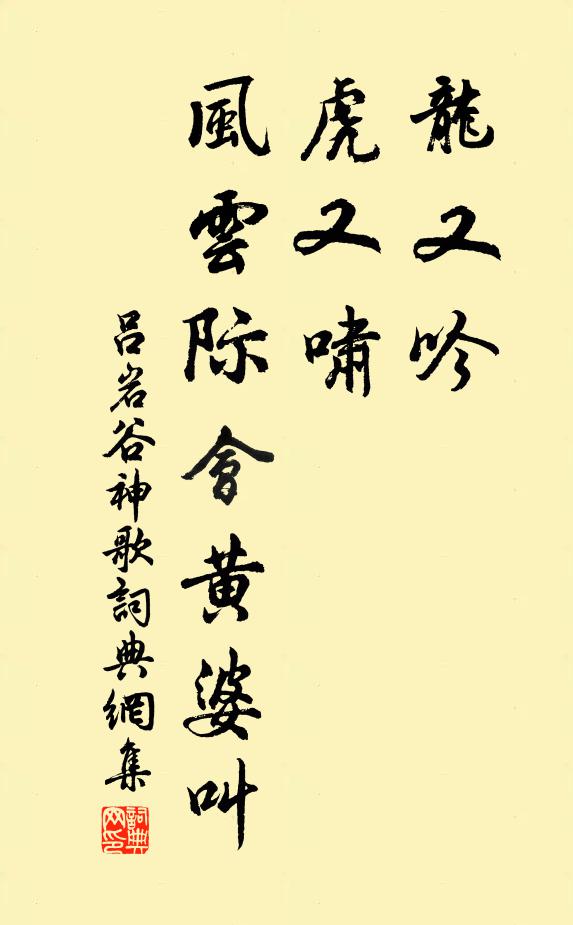 龍又吟
虎又嘯
風雲际會黄婆叫
吕岩谷神歌詞典網集
詞典网印